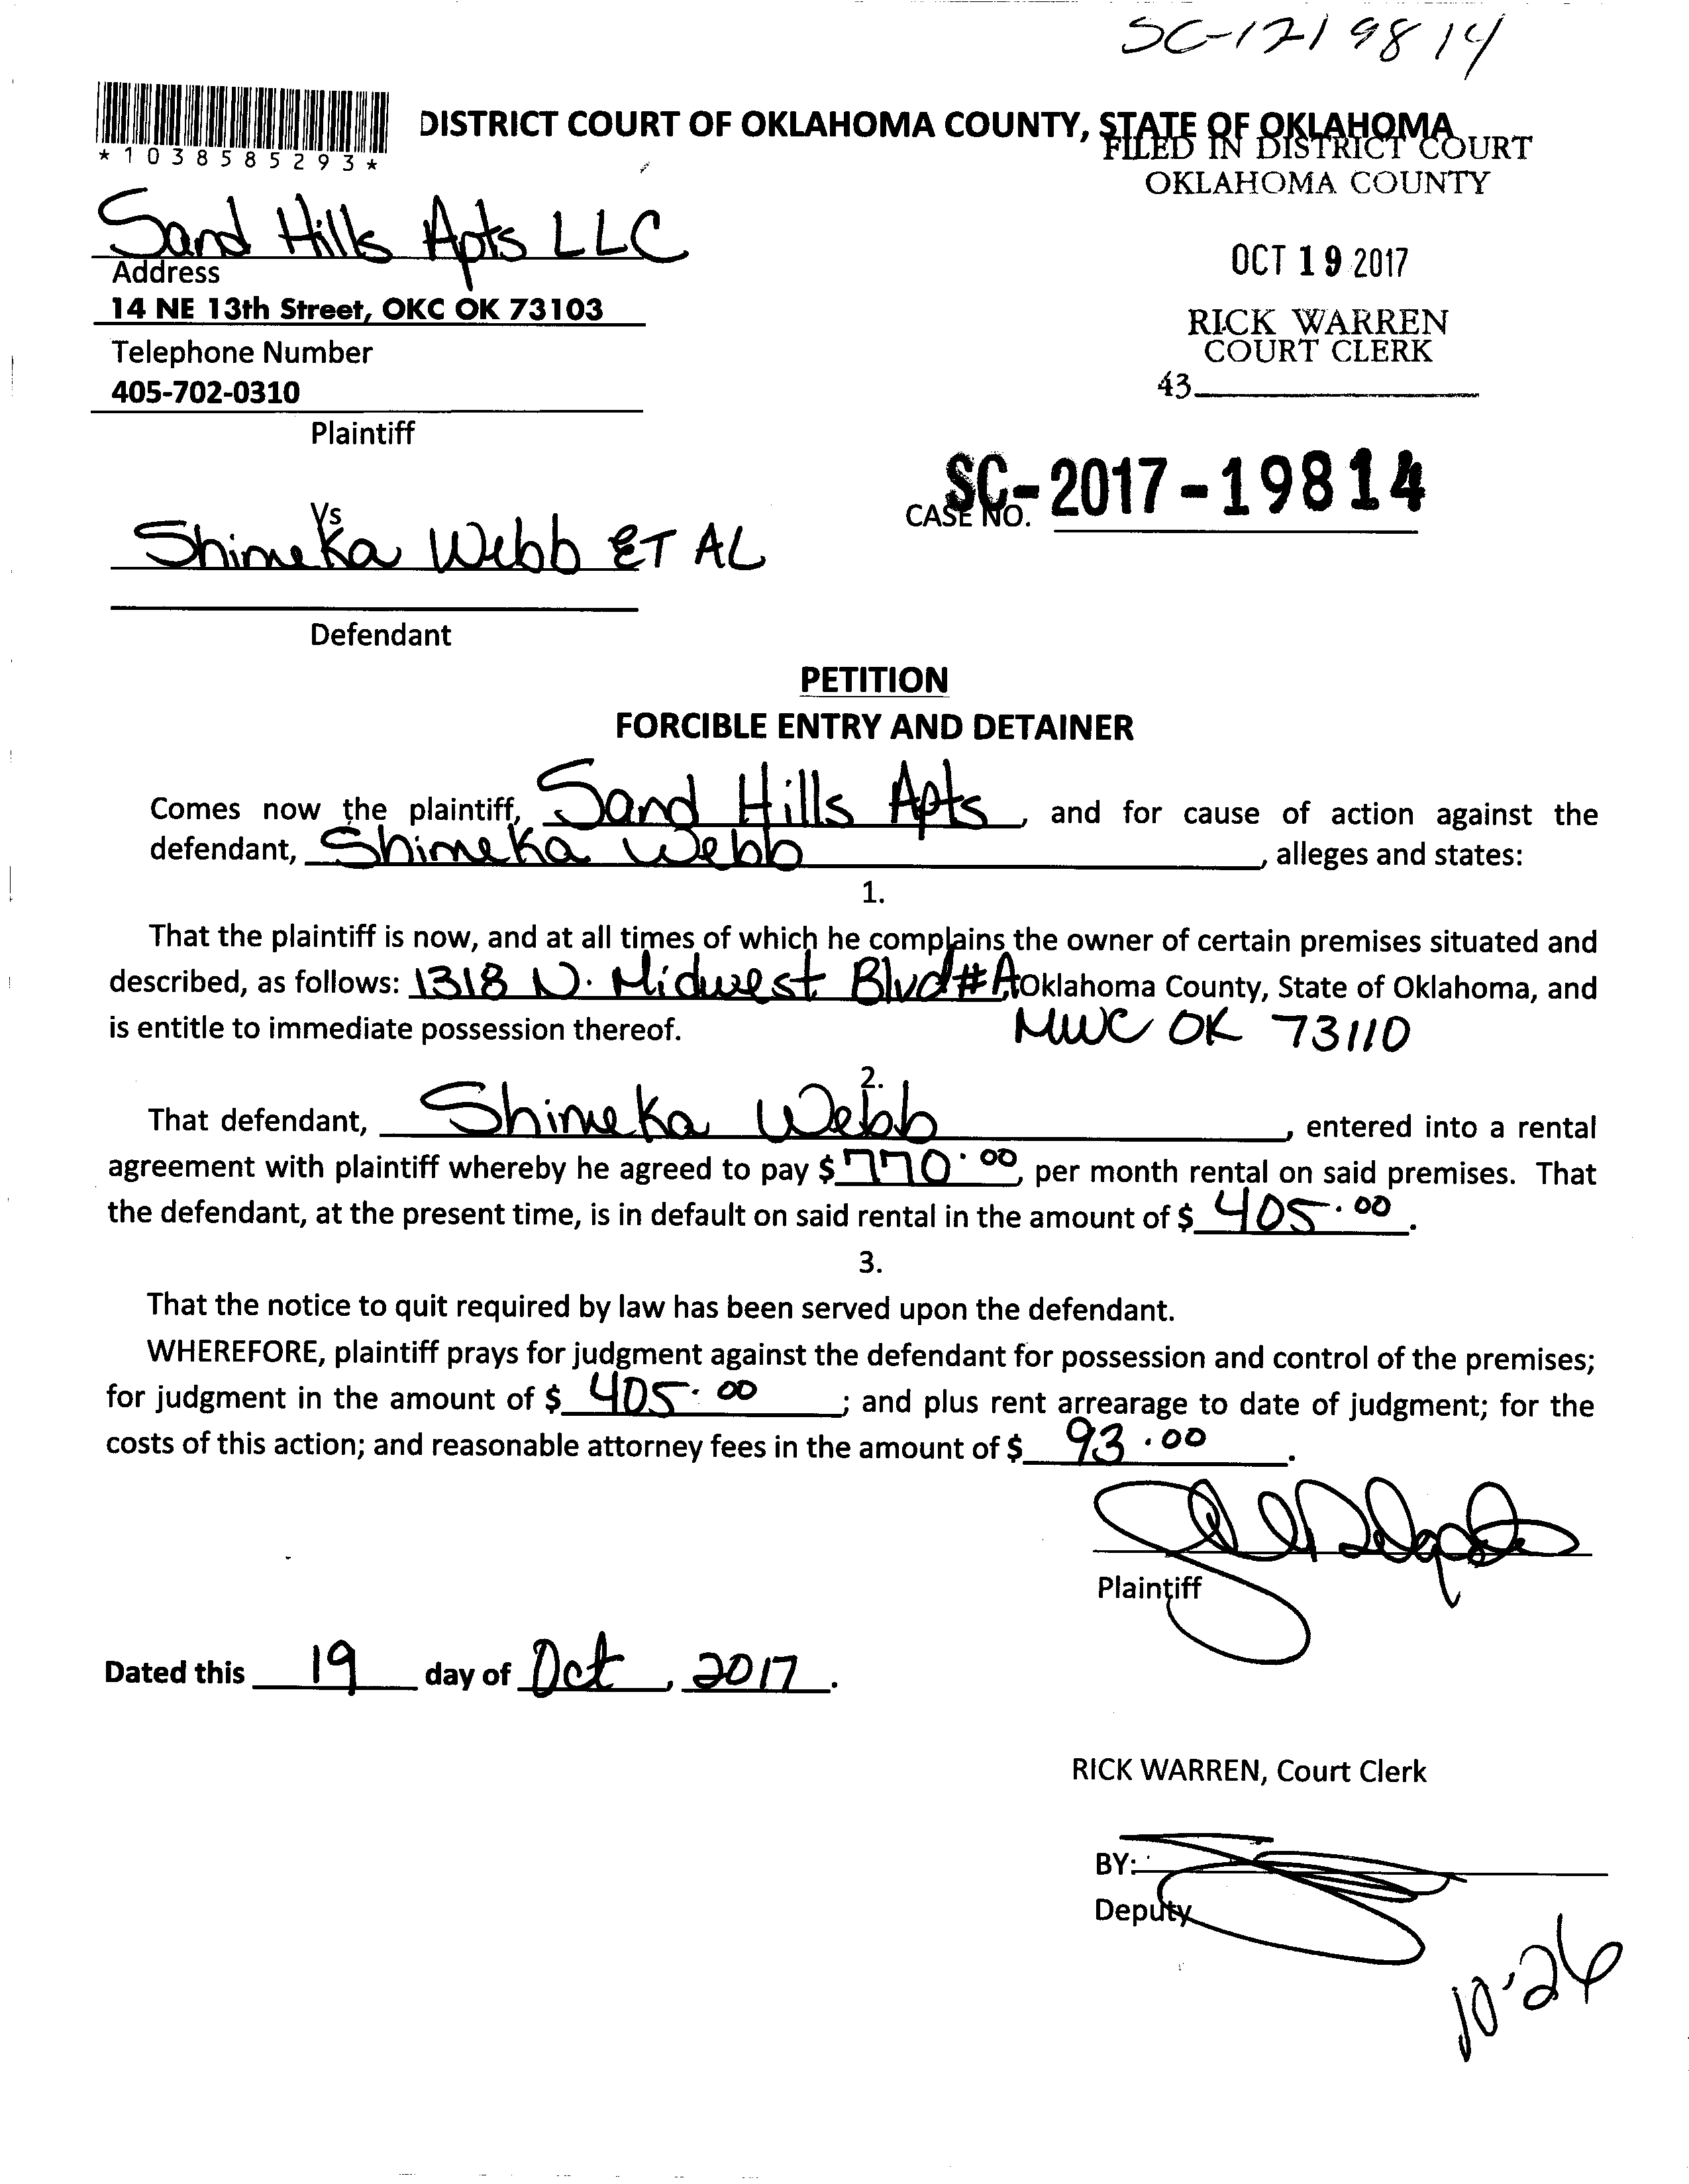 SC-1719814
*1038585293*
DISTRICT COURT OF OKLAHOMA COUNTY, STATE OF OKLAHOMA
FILED IN DISTRICT COURT
OKLAHOMA COUNTY
OCT 19 2017
RICK WARREN
COURT CLERK
43
Sand Hills Apts LLC
Address
14 NE 13th Street, OKC OK 73103
Telephone Number
405-702-0310
Plaintiff
Vs
CASE NO. SC-2017-19814
Shimeka Webb ET AL
Defendant
PETITION
FORCIBLE ENTRY AND DETAINER
Comes now the plaintiff, Sand Hills Apts, and for cause of action against the
defendant, Shimeka Webb, alleges and states:
1.
That the plaintiff is now, and at all times of which he complains the owner of certain premises situated and
described, as follows: 1318 N. Midwest Blvd #A Oklahoma County, State of Oklahoma, and
is entitle to immediate possession thereof. MWC OK 73110
2.
That defendant, Shimeka Webb, entered into a rental
agreement with plaintiff whereby he agreed to pay $770.00, per month rental on said premises. That
the defendant, at the present time, is in default on said rental in the amount of $ 405.00.
3.
That the notice to quit required by law has been served upon the defendant.
WHEREFORE, plaintiff prays for judgment against the defendant for possession and control of the premises;
for judgment in the amount of $ 405.00; and plus rent arrearage to date of judgment; for the
costs of this action; and reasonable attorney fees in the amount of $ 93.00.
Plaintiff
Dated this 19 day of Oct, 2017.
RICK WARREN, Court Clerk
BY:
Deputy
10-26